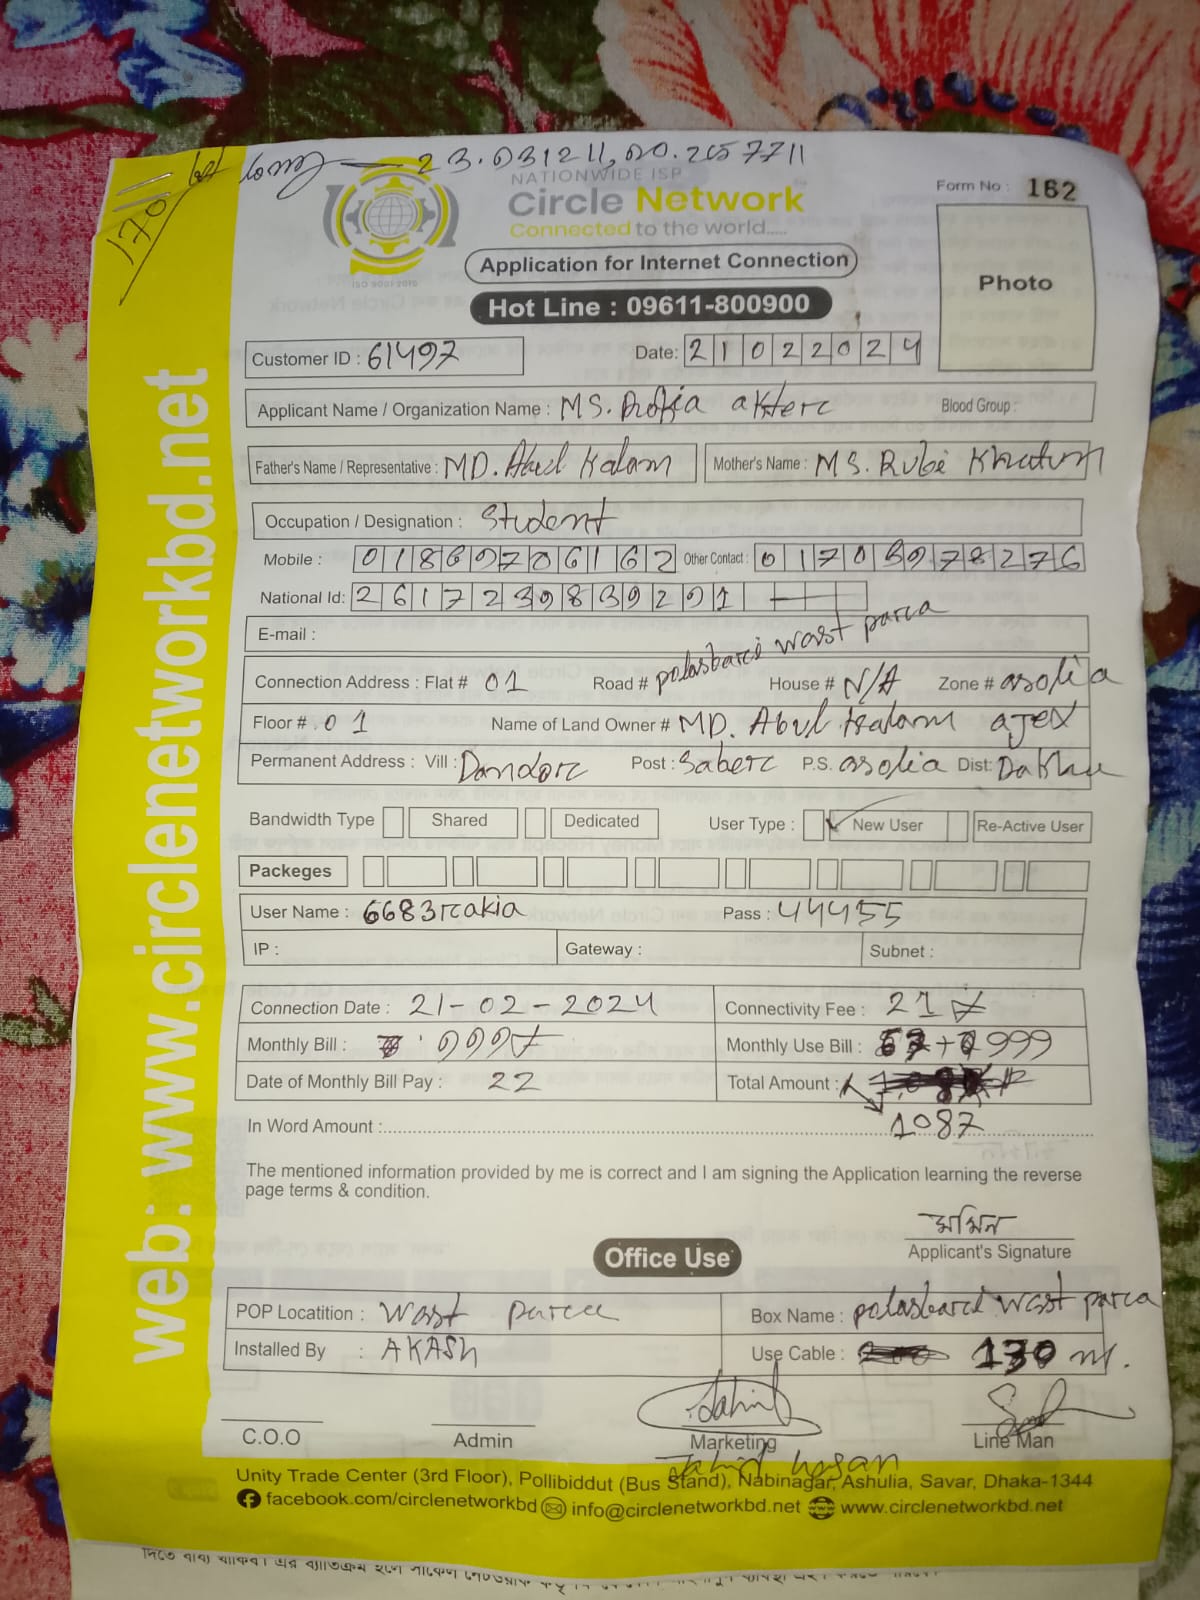 23.031211,90.2657711
1701
NATIONWIDE ISP
Circle Network
Connected to the world.....
ISO 9001:2015
Form No : 162
Photo
Application for Internet Connection
Hot Line : 09611-800900
Customer ID : 61497 Date: 21022024
Applicant Name / Organization Name : MS. akterc Blood Group :
Father's Name / Representative : MD. Abul Kalam Mother's Name : MS. Rubi Khatum
Occupation / Designation : Student
Mobile : 01869706162 Other Contact : 01705978276
National Id: 2617239839291
E-mail :
Connection Address : Flat # 01 Road # polasbarci wast parca House # N/A Zone # asolia
Floor # 01 Name of Land Owner # MD. Abul Kalam
Permanent Address : Vill : Dandorc Post : Saberc P.S. asolia Dist: Dakha
Bandwidth Type Shared Dedicated User Type : New User Re-Active User
Packeges
User Name : 6683rcakia Pass : 44455
IP : Gateway : Subnet :
Connection Date : 21-02-2024 Connectivity Fee : 21
Monthly Bill : 999 Monthly Use Bill : 999
Date of Monthly Bill Pay : 22 Total Amount :
1087
In Word Amount :
The mentioned information provided by me is correct and I am signing the Application learning the reverse
page terms & condition.
মমিন
Applicant's Signature
Office Use
POP Locatition : wast parca Box Name : polasbarci wast parca
Installed By : AKASH Use Cable : 130 m.
C.O.O Admin Marketing Line Man
Jahid hasan
Unity Trade Center (3rd Floor), Pollibiddut (Bus Stand), Nabinagar, Ashulia, Savar, Dhaka-1344
facebook.com/circlenetworkbd info@circlenetworkbd.net www.circlenetworkbd.net
web: www.circlenetworkbd.net